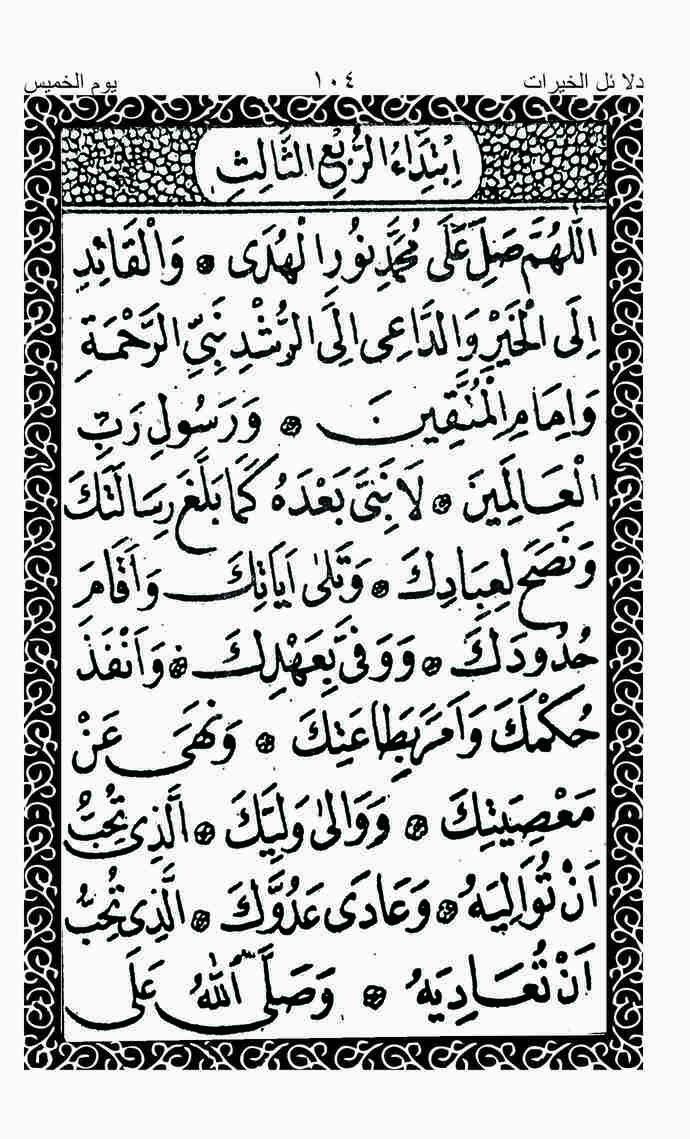 دلا ئل الخيرات ١٠٤ يوم الخميس
اِبْتِدَاءُ الرُّبْعِ الثَّالِثِ
اَللّٰهُمَّ صَلِّ عَلَى مُحَمَّدٍ نُورِ الْهُدَى ❁ وَالْقَائِدِ
اِلَى الْخَيْرِ وَالدَّاعِى اِلَى الرُّشْدِ نَبِيِّ الرَّحْمَةِ
وَاِمَامِ الْمُتَّقِينَ ❁ وَرَسُولِ رَبِّ
الْعَالَمِينَ ❁ لَا نَبِيَّ بَعْدَهُ كَمَا بَلَّغَ رِسَالَتَكَ
وَنَصَحَ لِعِبَادِكَ ❁ وَتَلَىٰ اٰيَاتِكَ وَاَقَامَ
حُدُودَكَ ❁ وَوَفَّى بِعَهْدِكَ ❁ وَاَنْفَذَ
حُكْمَكَ وَاَمَرَ بِطَاعَتِكَ ❁ وَنَهَى عَنْ
مَعْصِيَتِكَ ❁ وَوَالىٰ وَلِيَّكَ ❁ الَّذِى تُحِبُّ
اَنْ تُوَالِيَهُ ❁ وَعَادَى عَدُوَّكَ ❁ الَّذِى تُحِبُّ
اَنْ تُعَادِيَهُ ❁ وَصَلَّى اللّٰهُ عَلَى